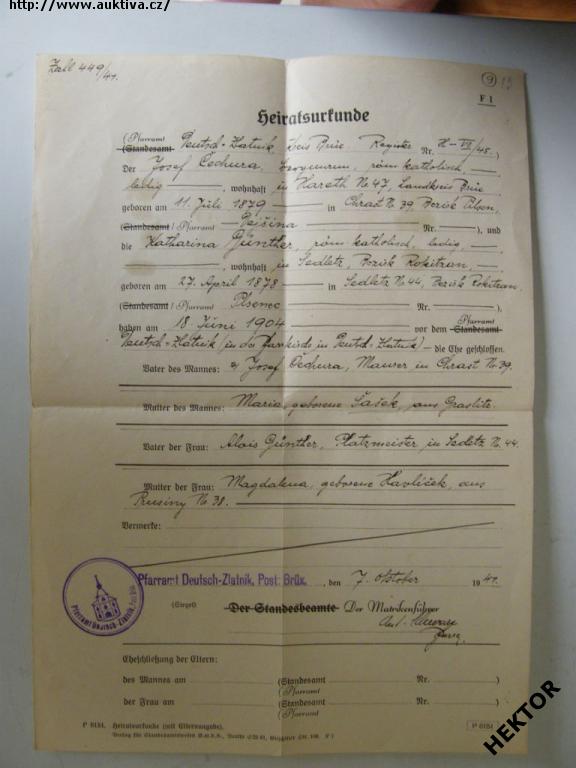 http://www.auktiva.cz/
Zahl 449/41.
9 13
F 1
Heiratsurkunde
(Pfarramt
(Standesamt Deutsch-Zlatnik, Kreis Brüx, Register Nr. II-VII/45.)
Der Josef Cechura, Bergmann, röm. katholisch,
ledig, wohnhaft in Hareth No 47, Landkreis Brüx
geboren am 11. Juli 1879 in Chrast N. 39, Bezirk Pilsen,
(Standesamt / Pfarramt Nr. ), und
die Katharina Günther, röm. katholisch, ledig,
, wohnhaft in Sedletz, Bezirk Rokitzan,
geboren am 27. April 1878 in Sedletz N. 44, Bezirk Rokitzan.
(Standesamt / Pfarramt Pilsenec Nr. )
Pfarramt
haben am 18. Juni 1904 vor dem Standesamt
Deutsch-Zlatnik (in der Pfarrkirche in Deutsch-Zlatnik) die Ehe geschlossen.
Vater des Mannes: Josef Čechura, Maurer in Chrast N. 39.
Mutter des Mannes: Maria, geborene Šašek, aus Graslitz.
Vater der Frau: Alois Günther, Platzmeister in Sedletz N. 44.
Mutter der Frau: Magdalena, geborene Havlíček, aus
No 38.
Vermerke:
Pfarramt Deutsch-Zlatnik, Post: Brüx, den 7. Oktober 1941.
Pfarramt Deutsch-Zlatnik, Post Brüx
(Siegel)
Der Standesbeamte Der Matrikenführer
Eheschließung der Eltern:
des Mannes am (Standesamt Nr. )
(Pfarramt
der Frau am (Standesamt Nr. )
(Pfarramt
P 0151. Heiratsurkunde (mit Elternangabe).
P 0151
Verlag für Standesamtswesen G.m.b.H., Berlin SW 61, Gitschiner Str. 109. F 1
HEKTOR